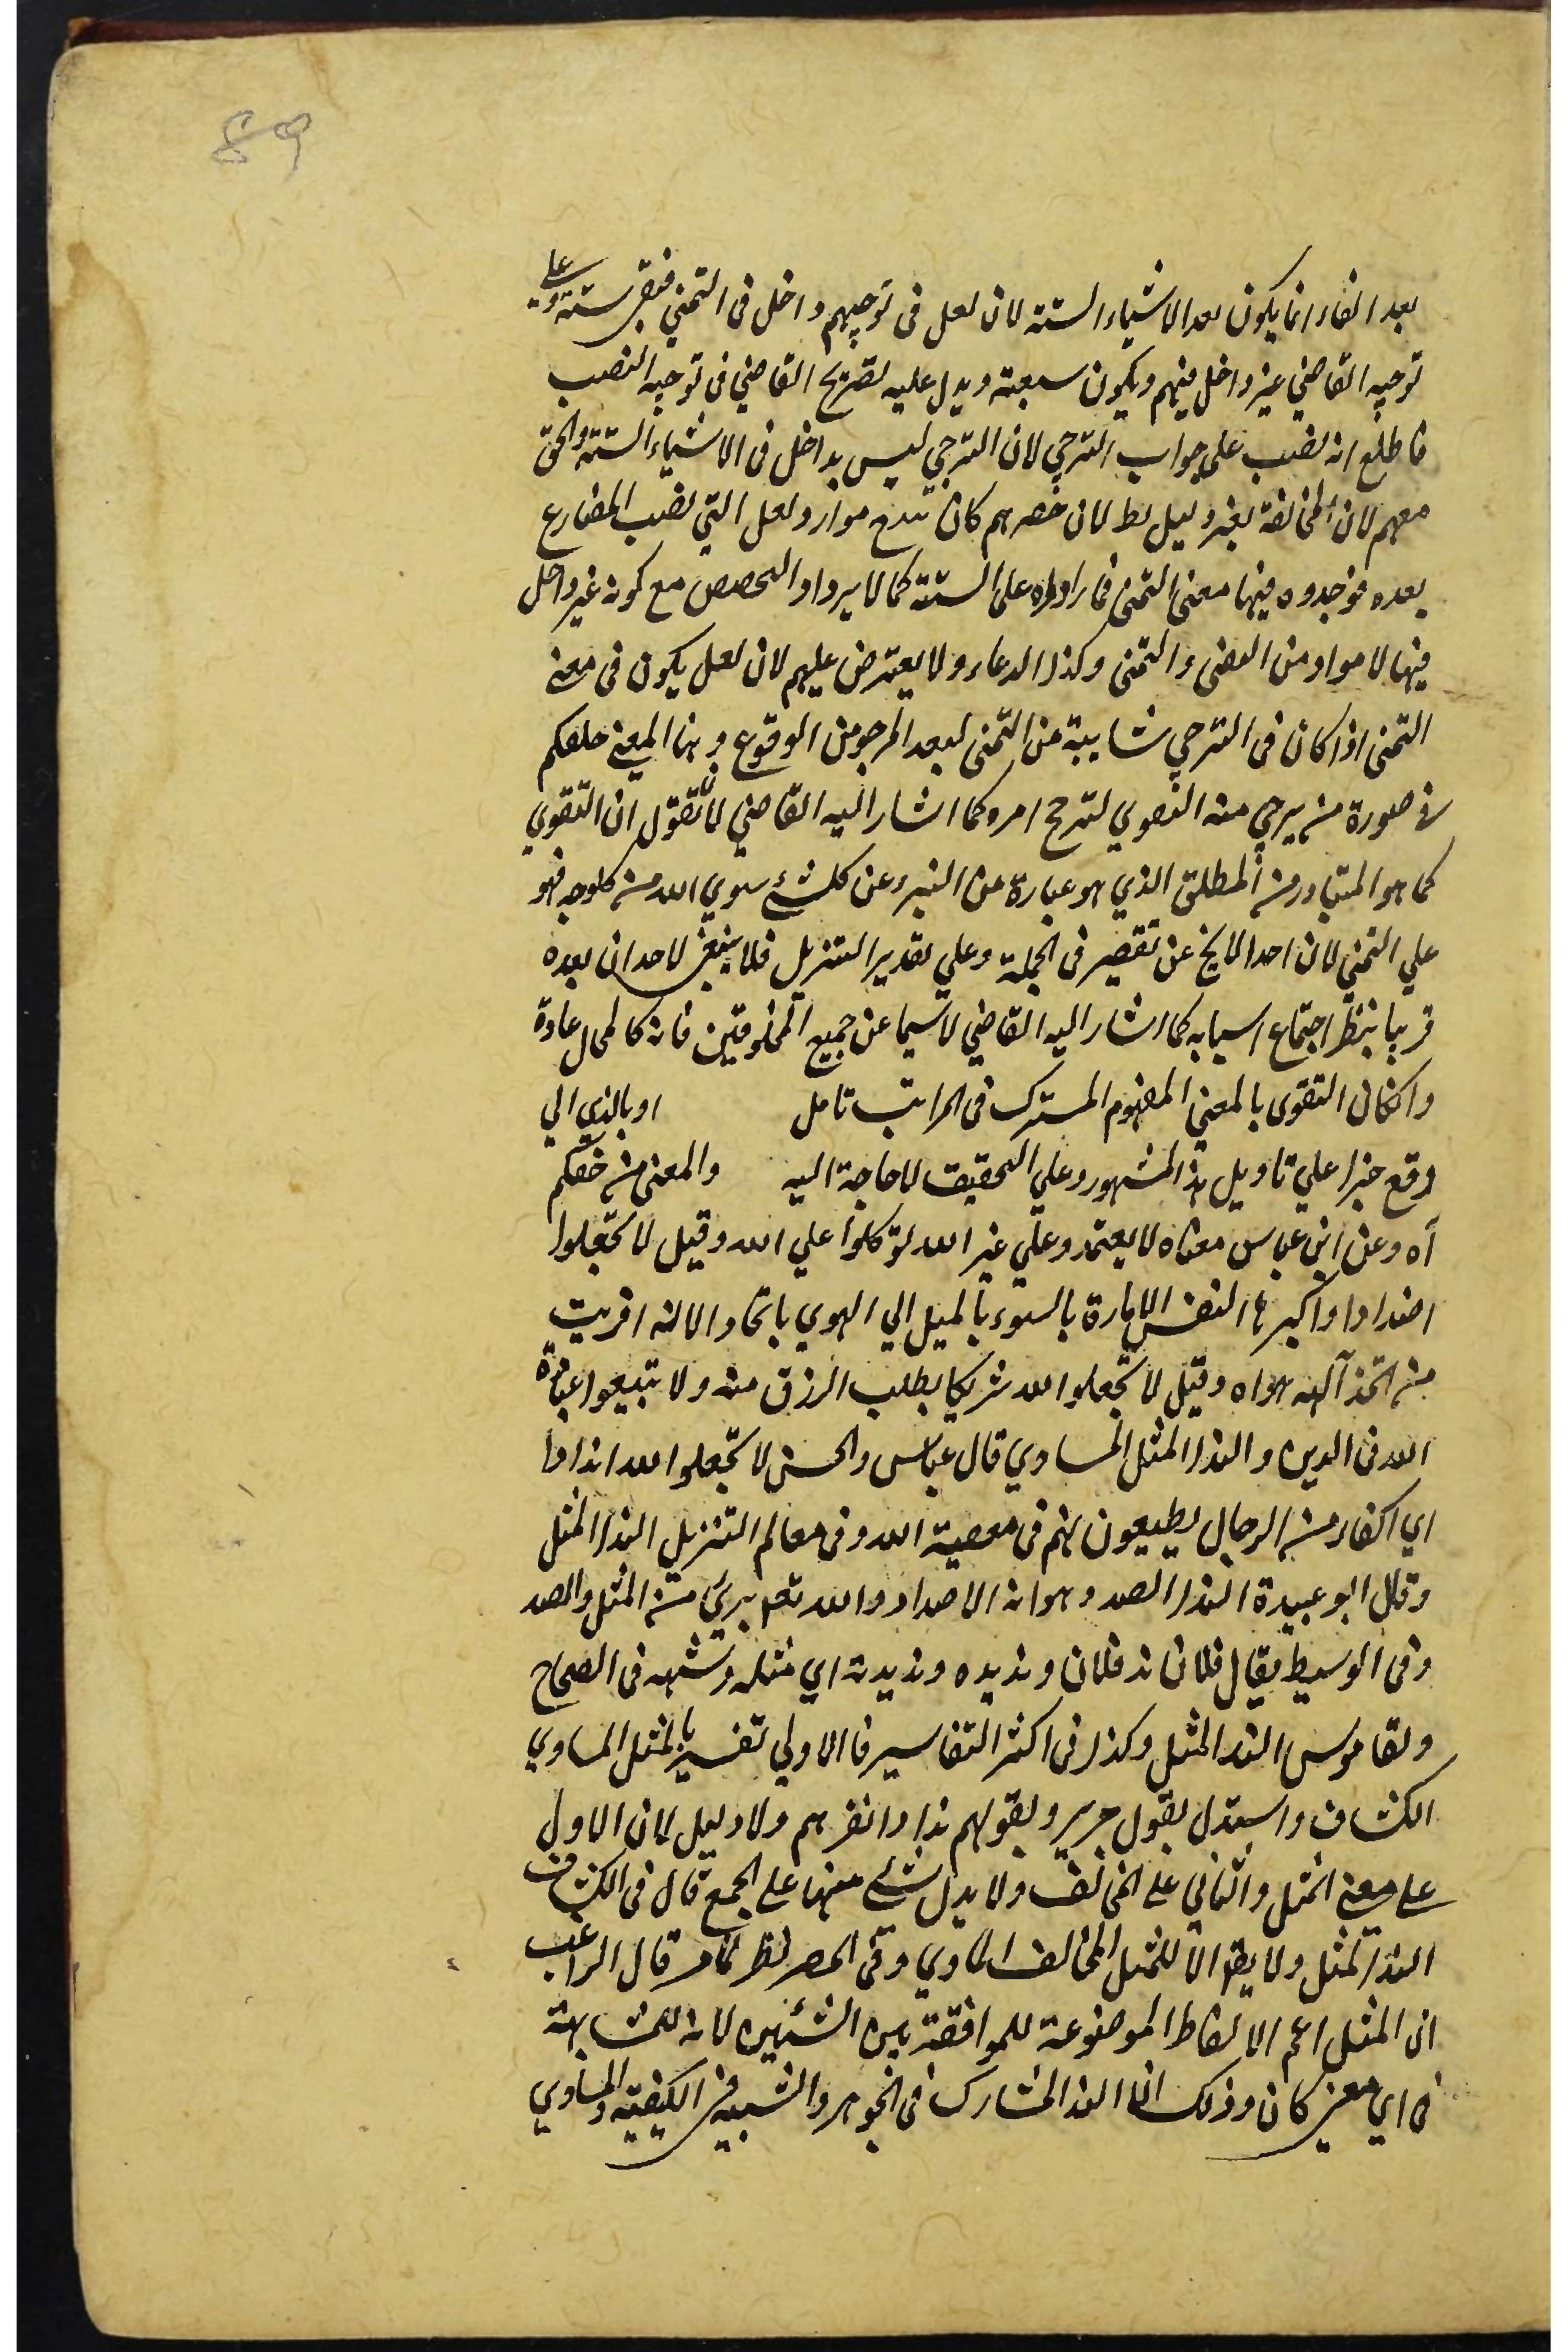 89
بعد الفاء انما يكون بعد الاشياء الستة لان لعل فى توجيههم داخل فى التمني فبقى ستة وعلى
توجيه القاضي غير داخل فيهم ويكون سبعة ويدل عليه تصريح القاضي فى توجيه النصب
فاطلع انه نصب على جواب الترجي لان الترجي ليس بداخل فى الاشياء الستة والحق
معهم لان المخالفة بغير دليل لان حصرهم كان موارد لعل التي نصب المضارع
بعده فوجدوه فيها معنى التمنى فما زادوه على الستة كما لا مع كونه غير داخل
فيها لا من والتمنى وكذا الدعاء ولا يعترض عليهم لان لعل يكون فى معنى
التمنى اذا كان فى الترجي شايبة من التمنى لبعد المرجو من الوقوع وبهذا المعنى خلقكم
فى صورة من يرجي منه التقوي لترجح امره كما اشار اليه القاضي لا نقول ان التقوي
كما هو المتبادر من المطلق الذي هو عبارة عن التبرء عن كل شئ سوي الله من كل وجه فهو
علي التمني لان احدا لا يخ عن تقصير فى الجملة وعلي تقدير التنزيل فلا ينبغى لاحد ان يعده
قريبا بنظر اجتماع اسبابه كما اشار اليه القاضي لا سيما عن جميع المخلوقين فانه كالمحال عادة
وان كان التقوى بالمعني المفهوم المشترك فى المراتب تامل او بالذي الي
وقع خبرا علي تاويل هذا المشهور وعلي التحقيق لا حاجة اليه والمعنى من خلقكم
آه وعن ابن عباس معناه لا يعتمدوا علي غير الله توكلوا علي الله وقيل لا تجعلوا
اضدادا واكبرها النفس الامارة بالسوء بالميل الي الهوي باتخاد الاله افريت
من اتخذ آلهه هواه وقيل لا تجعلوا لله شريكا بطلب الرزق منه ولا تبيعوا عبادة
الله فى الدين والند المثل المساوي قال عباس والحسن لا تجعلوا لله اندادا
اي اكفاء من الرجال يطيعون لهم فى معصية الله وفى معالم التنزيل الند المثل
وقال ابو عبيدة الند الضد وهو من الاضداد والله تعم بريئ من المثل والضد
وفى الوسيط يقال فلان ند فلان ونديده ونديدته اي مثله وشبهه فى الصحاح
والقاموس الند المثل وكذا فى اكثر التفاسير فالاولي تفسير بالمثل المساوي
الكشاف واستدل بقول جرير وبقولهم ندا وانفرهم ولا دليل لان الاول
على معنى المثل والثاني على المخالف ولا يدل شئ منها على الجمع قال فى الكشاف
الند المثل ولا يق الا للمثل المخالف المناوي وفى الحصر نظر لما مر قال الراغب
ان المثل اعم الالفاظ الموضوعة للموافقة بين الشئيين لانه للمشابهة
فى اي معنى كان وذلك ان الند المشارك فى الجوهر والشبيه فى الكيفية والمساوي